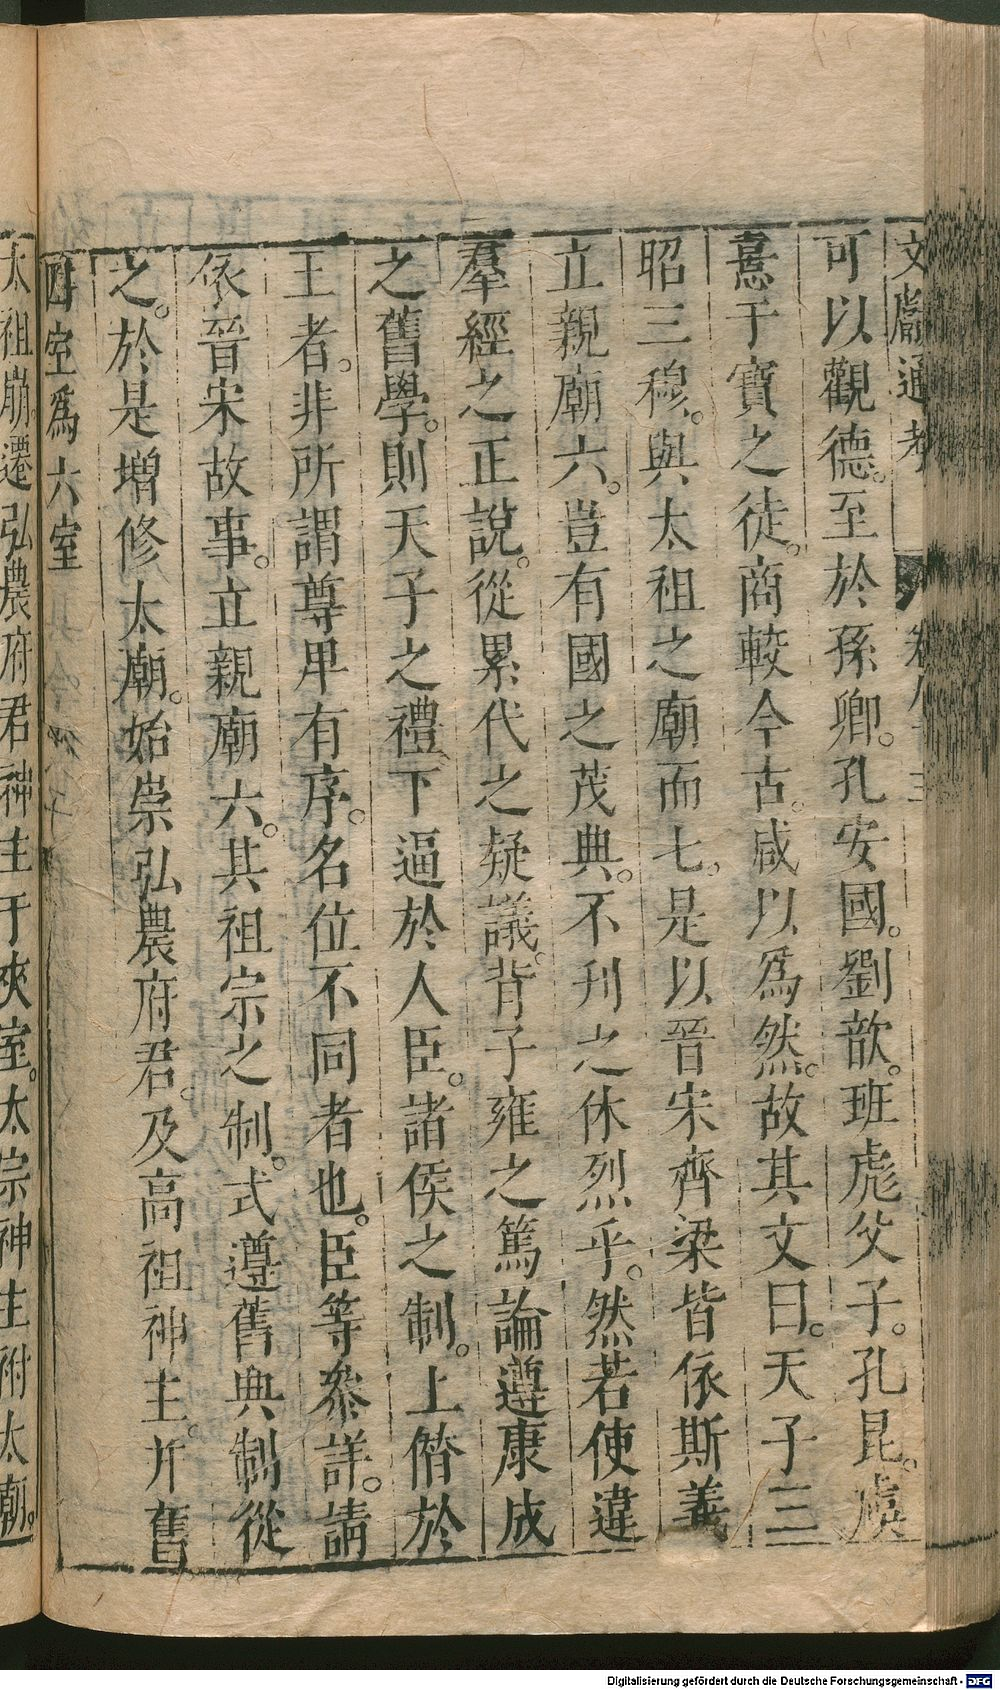 文獻通考 卷九十三
可以觀德。至於孫卿。孔安國。劉歆。班彪父子。孔昆。虞
憙于寶之徒。商較今古。咸以爲然。故其文曰。天子三
昭三穆。與太祖之廟而七。是以晉宋齊梁皆依斯義
立親廟六。豈有國之茂典。不刊之休烈乎。然若使違
羣經之正說。從累代之疑議。背子雍之篤論遵康成
之舊學。則天子之禮。下逼於人臣。諸侯之制。上僭於
王者。非所謂尊卑有序。名位不同者也。臣等參詳。請
依晉宋故事。立親廟六。其祖宗之制。式遵舊典制從
之。於是增修太廟。始崇弘農府君。及高祖神主。并舊
四室爲六室
太祖崩。遷弘農府君神主于夾室。太宗神主祔太廟。
Digitalisierung gefördert durch die Deutsche Forschungsgemeinschaft - DFG